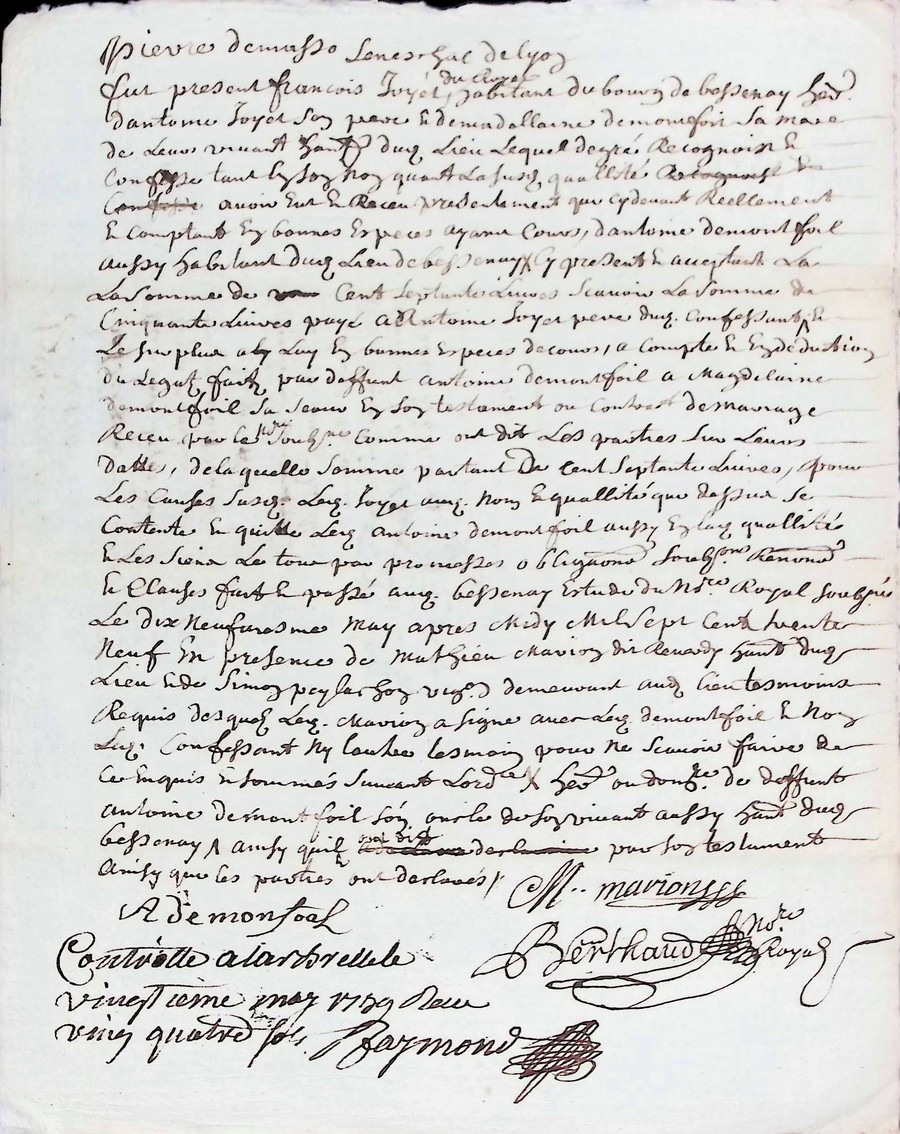 Pierre demasso Seneschal de lyon
fut present francois Joyet, du Rozet habitant du bourg de bessenay her.
dantoine Joyet son pere et demadallaine demontfoil Sa mere
de Leurs vivant hant dud Lieu Lequel degré Recognoist et
Confesse tant en son nom quant La susd quallité Recognoist et
Confesse avoir Eut et Receu presentement que cydevant Reellement
Et comptant En bonnes Especes ayant Cours, dantoine demontfoil
aussy habitant dud Lieu de bessenay X Cy present et acceptant La
La Somme de Cent septante Livres scavoir La somme de
Cinquante Livres payé a Antoine Joyet pere dud. Confessant, Et
Le surplus a Luy En bonnes Especes de cours, a Compte et En deduction
du Legat fait par deffunt antoine demontfoil a Magdelaine
demontfoil Sa seur En son testament ou Contract demariage
Receu par les nores soubz.ne comme ont dit Les parties Sur Leurs
dattes, de laquelle somme partant De Cent Septante Livres, pour
Les Causes susd. Led. Joyet aud. Nom Et quallité que dessus se
Contente Et quitte Led antoine demontfoil aussy En lad quallité
Et Les siens Le tout par promesses obligaons soubz.ons Renonnes
Et Clauses fait Et passé aud. bessenay Estude du No.re Royal soubsné
Le dix Neufviesme May apres Midy Mil Sept Cent trente
Neuf En presence de Mathieu Marion dit Renardy hant dud
Lieu Et de Simon peylachon vign.d demeurant aud lieu tesmoins
Requis desquels Led. Marion a signé avec Led demontfoil Et Non
Led. Confessant Ny lautre tesmoin pour ne scavoir faire de
Ce Enquis Et sommés Suivant Lord.ce X her ou don.re de deffunt
antoine demontfoil son oncle de son vivant aussy hant dud
bessenay / ainsy quil ont dit declaire par son testament
Ainsy que les parties ont declarés /
M.. marion
A demonfoal
Berthaud No.re Royal
Controllé alarbrelle le
vingtieme may 1739 Receu
vingt quatre sols Raymond